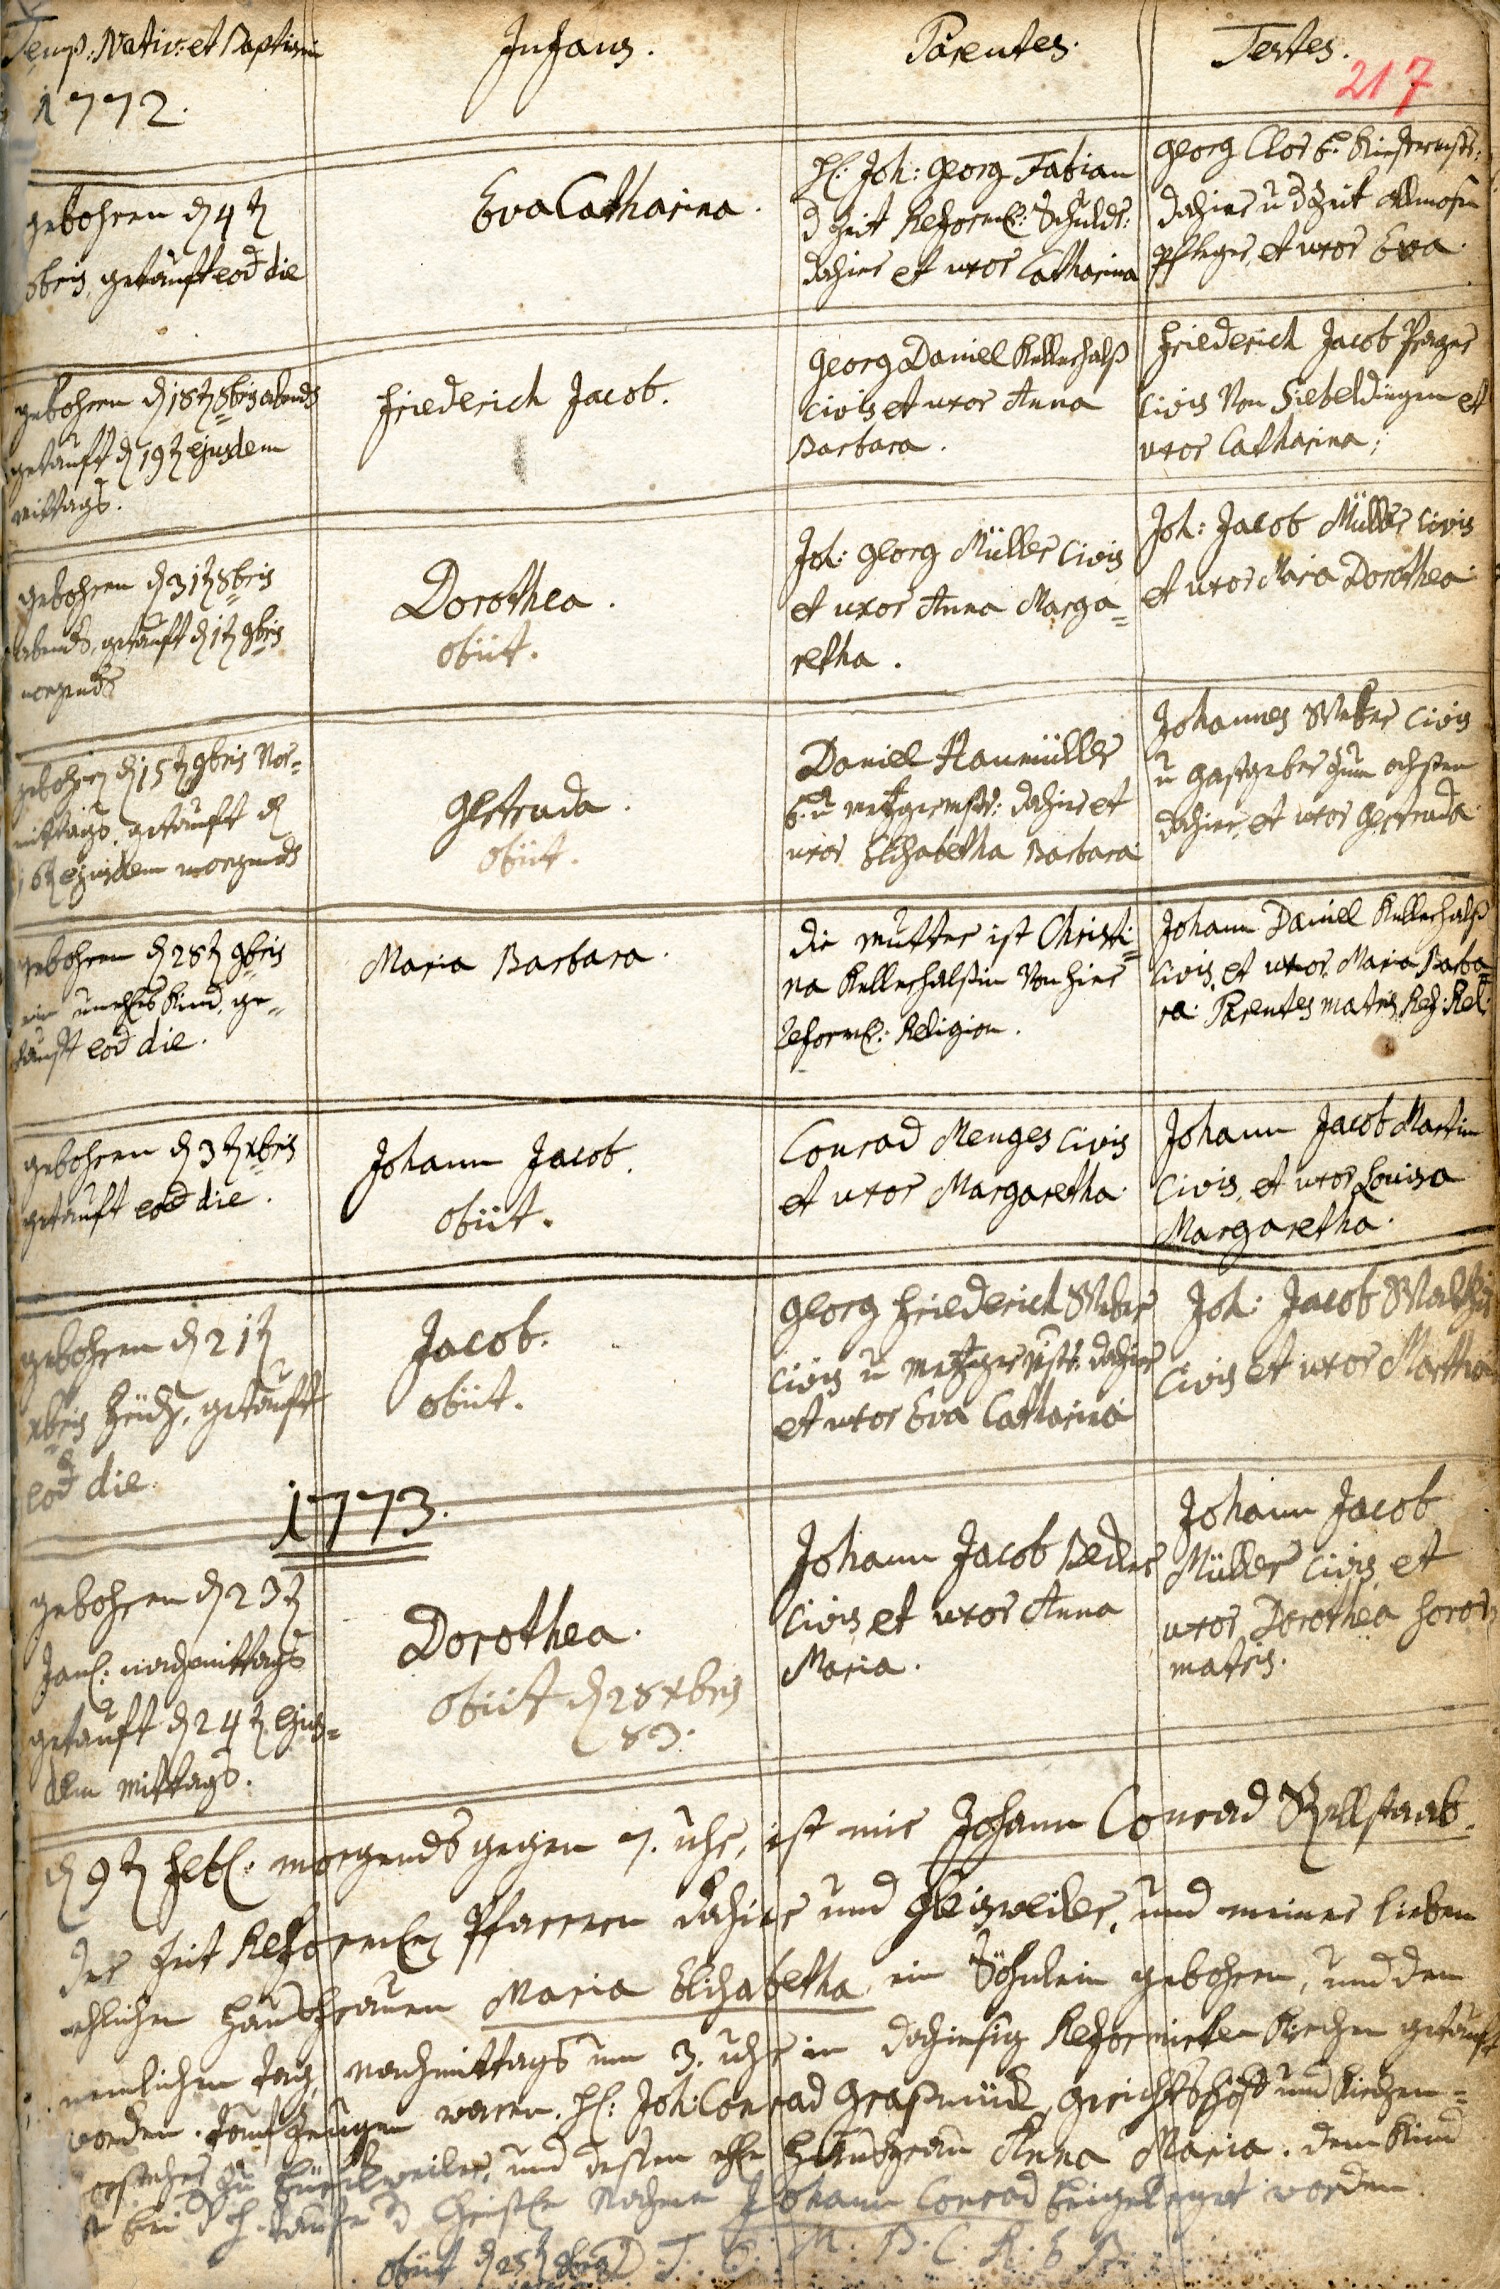 Temp: Nativ: et Baptismi
Infans.
Parentes.
Testes.
217
1772.
gebohren d 4t
8bris, getauft eod die
Eva Catharina.
H: Joh: Georg Fabian
d Zeit Reform: Schuld:
dahier et uxor Catharina
Georg Clor
dahier u d Zeit Allmosen
Pfleger, et uxor Eva.
gebohren d 18t 8bris abends
getauft d 19t ejusdem
mittags.
Friederich Jacob.
Georg Daniel Kellerhalß
Civis et uxor Anna
Barbara.
Friederich Jacob
Civis Von Siebeldingen et
uxor Catharina;
gebohren d 31t 8bris
abends, getauft d 1t 9bris
morgends
Dorothea.
obiit.
Joh: Georg Müller Civis
et uxor Anna Marga=
retha.
Joh: Jacob Müller Civis
et uxor Maria Dorothea.
gebohren d 15t 9bris Vor=
mittags, getauft d
16t ejusdem morgends
Gertruda.
obiit.
Daniel Haumüller
b. u metzgermstr: dahier et
uxor Elisabetha Barbara
Johannes Weber Civis
u gastgeber zum ochsen
dahier, et uxor Gertruda
gebohren d 28t 9bris
ein unehles Kind, ge=
tauft eod die.
Maria Barbara.
die Mutter ist Christi=
na Kellerhalßin Von hier
Reform: Religion.
Johann Daniel Kellerhalß
Civis, et uxor Maria Barba=
ra. Parentes matris, Ref: Rel.
gebohren d 3t xbris
getauft eod die.
Johann Jacob.
obiit.
Conrad Menges Civis
et uxor Margaretha
Johann Jacob Martin
Civis, et uxor Louisa
Margaretha.
gebohren d 21t
xbris getauft
eod die
Jacob.
obiit.
Georg Friederich Weber
Civis u Metzger mstr: dahier
et uxor Eva Catharina
Joh: Jacob
Civis et uxor Martha
1773.
gebohren d 23t
Jan: nachmittags
getauft d 24t ejus=
dem mittags.
Dorothea.
obiit d 28 xbris
83.
Johann Jacob Becker
Civis et uxor Anna
Maria.
Johann Jacob
Müller Civis, et
uxor Dorothea soror
matris.
d 9t Feb: morgends gegen 7. uhr, ist mir Johann Conrad Rellstaab
der Zeit Reform Pfarrern dahier und Gleisweiler, und meiner lieben
ehlichen haußfrauen Maria Elisabetha ein Söhnlein gebohren, und den
nemlichen tag, nachmittags um 3. uhr in dahiesig Reformirten Kirchen getauft
worden. Tauf Zeugen waren, H: Joh: Conrad Graßmück, und Kirchen=
vorsteher zu und dessen ehl Haußfrau Anna Maria. dem Kind
bei d h. Taufe d Christl Nahme Johann Conrad beigeleget worden.
obiit d 25t